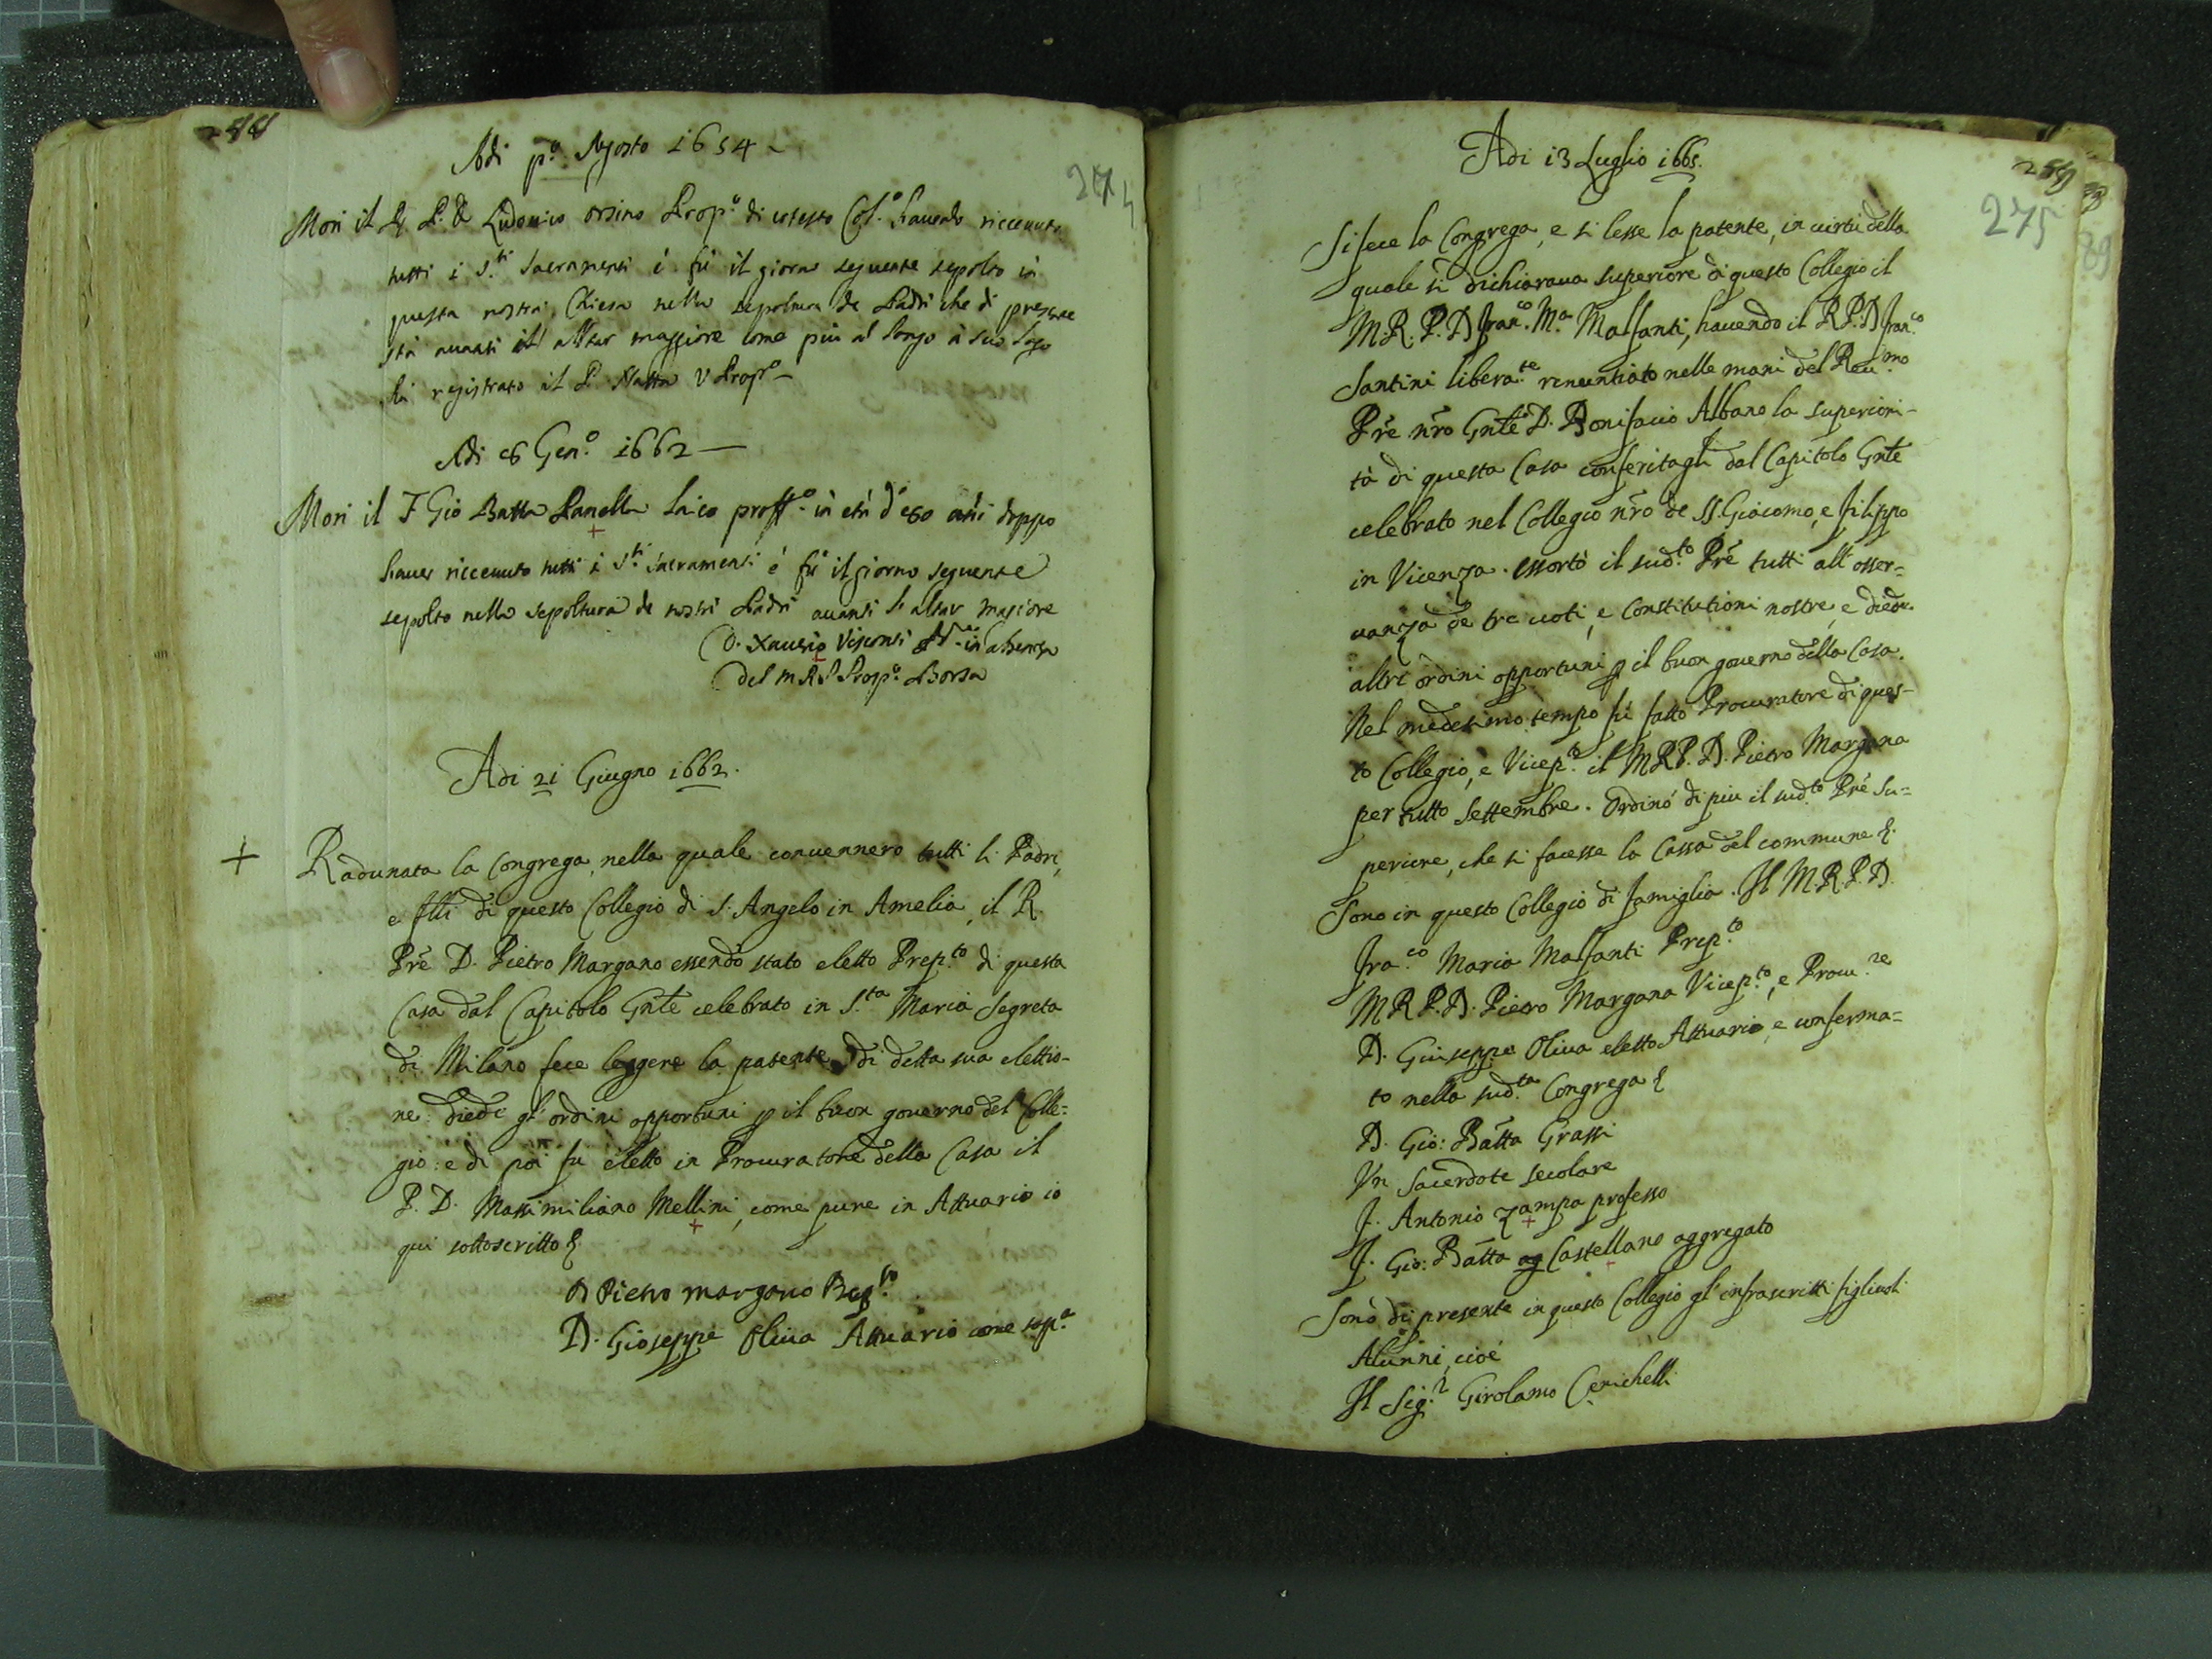 Adi p.º Agosto 1654
274
Mori il R. P. D. Ludouico Orsino Prop.º di cotesto Col.º hauendo riceuuto
tutti i S.ti Sacramenti è fù il giorno seguente sepolto in
questa nostra Chiesa nella sepoltura de Padri che di presente
stà auanti il altar maggiore come più al longo à suo logo
hà registrato il P. Natta V Prop.º
Adi 6 Gen.º 1662
Mori il F Gio Batta Panella laico proff.º in età d 60 anni doppo
hauer riceuuto tutti i S.ti sacramenti è fù il giorno seguente
sepolto nella sepoltura de nostri Padri auanti l'altar magiore
D. Visconti in absenza
Del M R P Prop.º Borsa
Adi 21 Giugno 1662.
+ Radunata la Congrega, nella quale conuennero tutti li Padri,
e flli di questo Collegio di S. Angelo in Amelia, il R.
Prē D. Pietro Margano essendo stato eletto Prep.to di questa
Casa dal Capitolo Gnle celebrato in S.ta Maria Segreta
di Milano fece leggere la patente di detta sua elettio-
ne: diede gl'ordini opportuni p il buon gouerno del Colle=
gio: e di poi fu eletto in Procuratore della Casa il
P. D. Massimiliano Mellini, come pure in Attuario io
qui sottoscritto
D Pietro Margano Prep.to
D. Gioseppe Oliua Attuario come sop.a
Adi 13 Luglio 1665.
259
275
89
Si fece la Congrega, e si lesse la patente, in uirtù della
quale si dichiaraua superiore di questo Collegio il
M. R. P. D Fran.co M.a Malfanti, hauendo il R. P. D Fran.co
Santini libera.te renuntiato nelle mani del Reu.mo
Prē nr̃o Gnle D. Bonifacio Albano la superiori-
tà di questa Casa conferitagli dal Capitolo Gnle
celebrato nel Collegio nr̃o de SS. Giacomo, e Filippo
in Vicenza. essortò il sud.to Prē tutti all'osser=
uanza de tre uoti, e Constitutioni nostre, e diede
altri ordini opportuni p il buon gouerno della Casa.
Nel medesimo tempo fù fatto Procuratore di ques-
to Collegio, e Vicep.to il M R P. D. Pietro Margana
per tutto Settembre. Ordinò di piu il sud.to Prē Su=
periore, che si facesse la Cassa del commune
Sono in questo Collegio di famiglia. Il M. R. P. D.
Fra.co Maria Malfanti Prep.to
M R P. D. Pietro Margana Vicep.to, e Procu.re
D. Giuseppe Oliua eletto Attuario, e conferma=
to nella sud.ta Congrega
D. Gio: Batta Grassi
Vn Sacerdote secolare
F. Antonio Zampa professo
F. Gio: Batta ag Castellano aggregato
Sono di presente in questo Collegio gl'infrascritti figliuoli
Alunni, cioè
Il Sig.r Girolamo Cerichelli